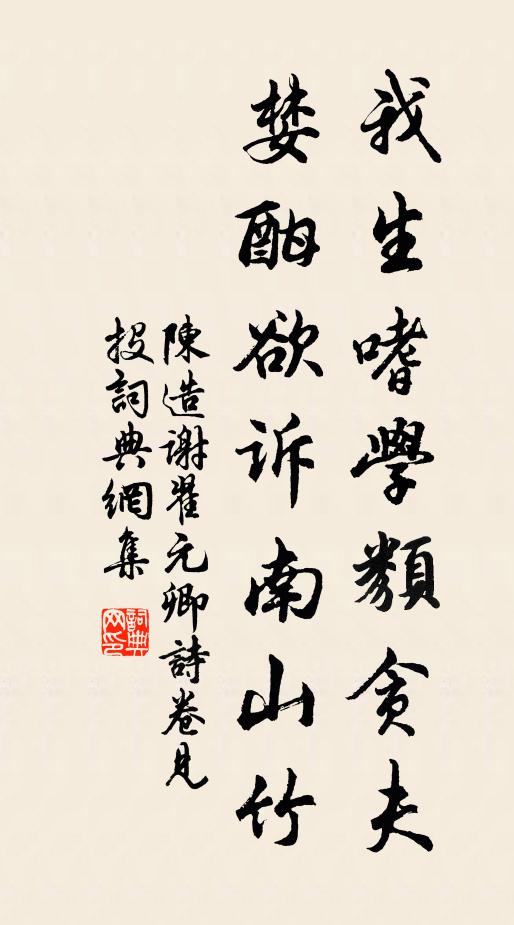 我生嗜學類貪夫
婪酣欲訴南山竹
陳造謝翟元卿詩卷見
投詞典網集
詞典
网印